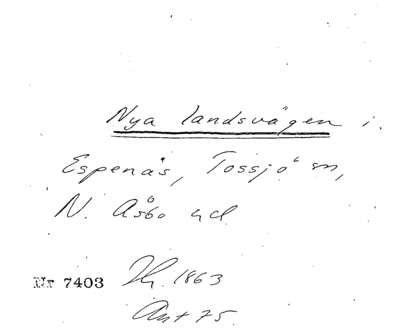 Nya landsvägen i
Espenäs, Tossjö sn,
N. Åsbo hd
Nr 7403 Th. 1863
Ant 75.